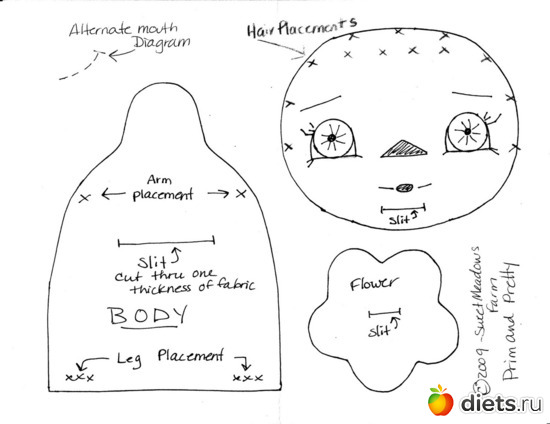 Alternate mouth
Diagram
Hair Placements
Arm
placement
Slit
cut thru one
thickness of fabric
BODY
Leg Placement
slit
Flower
slit
©2009 - Sweet Meadows
Farm
Prim and Pretty
diets.ru